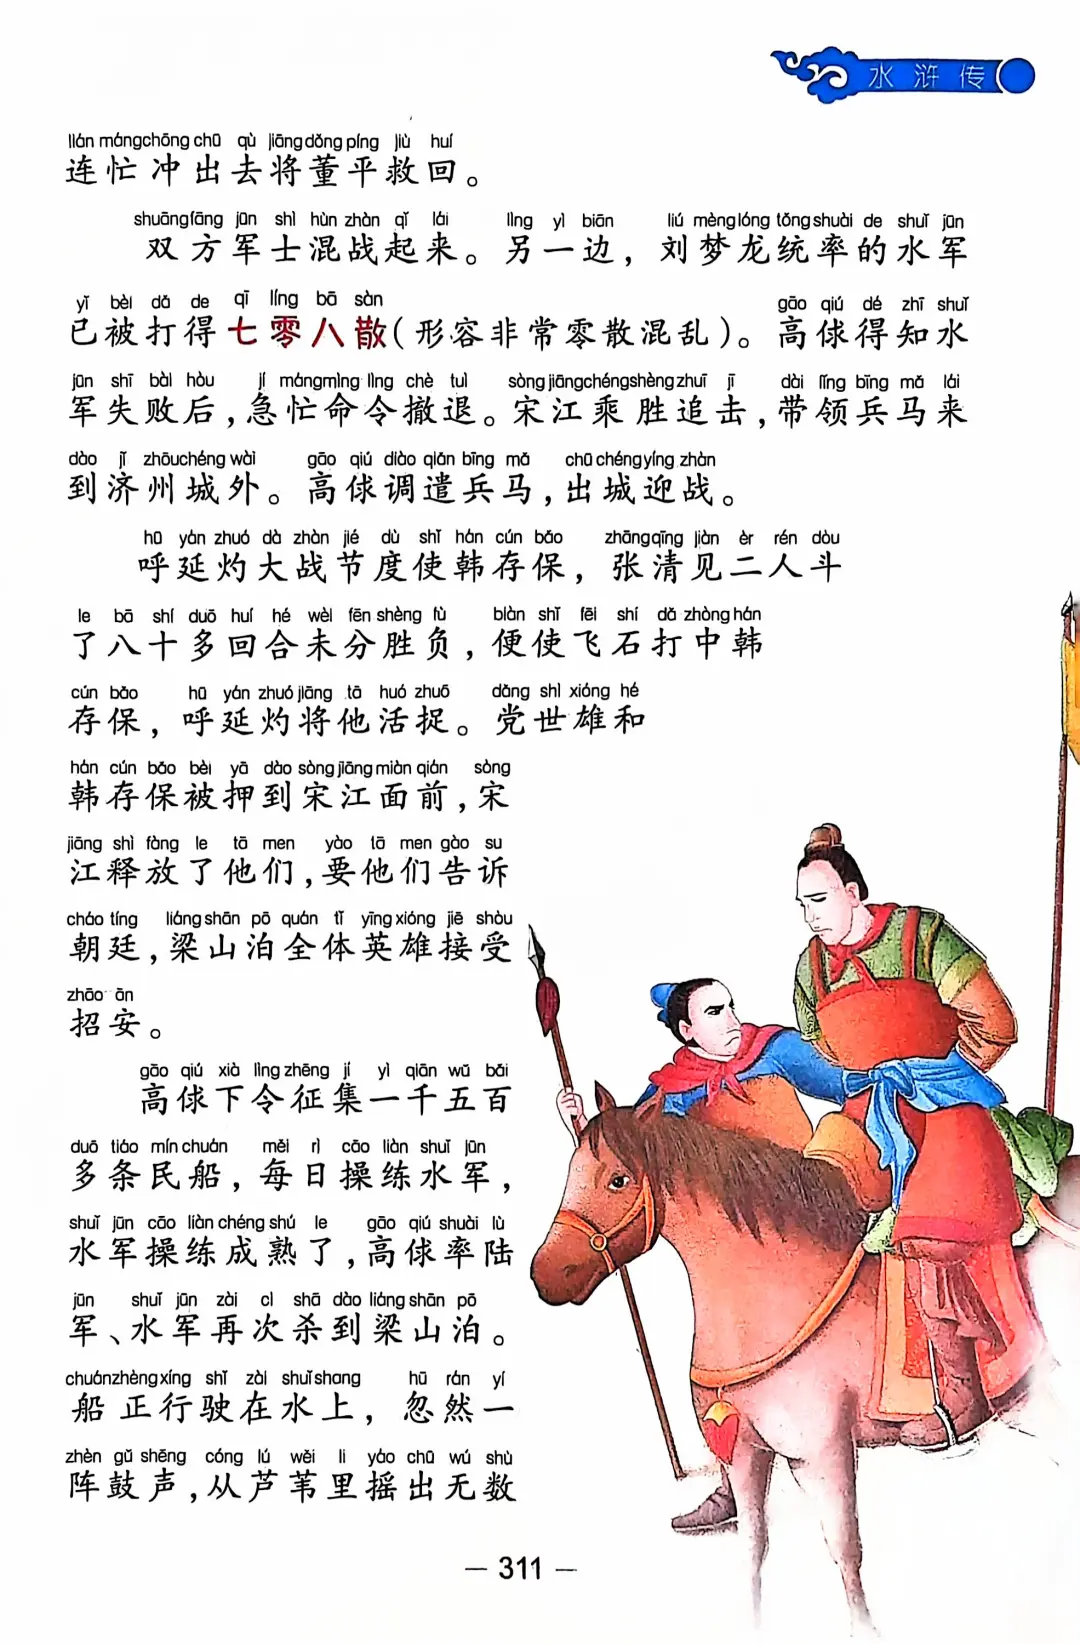 水浒传
lián máng chōng chū qù jiāng dǒng píng jiù huí
连忙冲出去将董平救回。
shuāng fāng jūn shì hùn zhàn qǐ lái lìng yì biān liú mèng lóng tǒng shuài de shuǐ jūn
双方军士混战起来。另一边，刘梦龙统率的水军
yǐ bèi dǎ de qī líng bā sàn gāo qiú dé zhī shuǐ
已被打得七零八散(形容非常零散混乱)。高俅得知水
jūn shī bài hòu jí máng mìng lìng chè tuì sòng jiāng chéng shèng zhuī jī dài lǐng bīng mǎ lái
军失败后,急忙命令撤退。宋江乘胜追击,带领兵马来
dào jǐ zhōu chéng wài gāo qiú diào qiǎn bīng mǎ chū chéng yíng zhàn
到济州城外。高俅调遣兵马,出城迎战。
hū yán zhuó dà zhàn jié dù shǐ hán cún bǎo zhāng qīng jiàn èr rén dòu
呼延灼大战节度使韩存保，张清见二人斗
le bā shí duō huí hé wèi fēn shèng fù biàn shǐ fēi shí dǎ zhòng hán
了八十多回合未分胜负,便使飞石打中韩
cún bǎo hū yán zhuó jiāng tā huó zhuō dǎng shì xióng hé
存保，呼延灼将他活捉。党世雄和
hán cún bǎo bèi yā dào sòng jiāng miàn qián sòng
韩存保被押到宋江面前,宋
jiāng shì fàng le tā men yào tā men gào su
江释放了他们,要他们告诉
cháo tíng liáng shān pō quán tǐ yīng xióng jiē shòu
朝廷,梁山泊全体英雄接受
zhāo ān
招安。
gāo qiú xià lìng zhēng jí yì qiān wǔ bǎi
高俅下令征集一千五百
duō tiáo mín chuán měi rì cāo liàn shuǐ jūn
多条民船,每日操练水军,
shuǐ jūn cāo liàn chéng shú le gāo qiú shuài lù
水军操练成熟了,高俅率陆
jūn shuǐ jūn zài cì shā dào liáng shān pō
军、水军再次杀到梁山泊。
chuán zhèng xíng shǐ zài shuǐ shang hū rán yí
船正行驶在水上，忽然一
zhèn gǔ shēng cóng lú wěi li yáo chū wú shù
阵鼓声,从芦苇里摇出无数
— 311 —